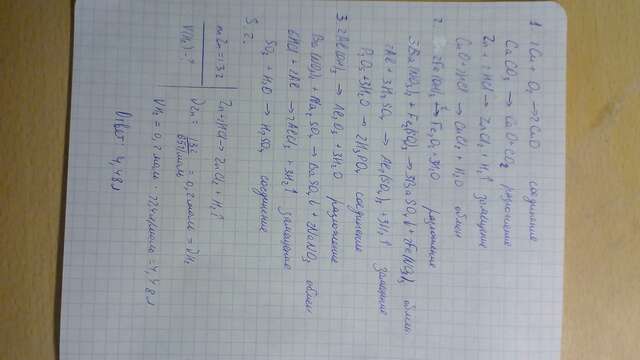 1. 2Cu + O₂ → 2CuO соединение
CaCO₃ → CaO + CO₂ разложение
Zn + 2HCl → ZnCl₂ + H₂↑ замещение
CuO + 2HCl → CuCl₂ + H₂O обмен
2. 2Fe(OH)₃ → Fe₂O₃ + 3H₂O разложение
3Ba(NO₃)₂ + Fe₂(SO₄)₃ → 3BaSO₄↓ + 2Fe(NO₃)₃ обмен
2Al + 3H₂SO₄ → Al₂(SO₄)₃ + 3H₂↑ замещение
P₂O₅ + 3H₂O → 2H₃PO₄ соединение
3. 2Al(OH)₃ → Al₂O₃ + 3H₂O разложение
Ba(NO₃)₂ + Na₂SO₄ → BaSO₄↓ + 2NaNO₃ обмен
6HCl + 2Al → 2AlCl₃ + 3H₂↑ замещение
SO₃ + H₂O → H₂SO₄ соединение
5. 2.
mZn = 13г
V(H₂) = ?
Zn + 2HCl → ZnCl₂ + H₂↑
νZn = 13г / 65г/моль = 0,2моль = νH₂
VH₂ = 0,2 моль · 22,4л/моль = 4,48л
Ответ: 4,48л